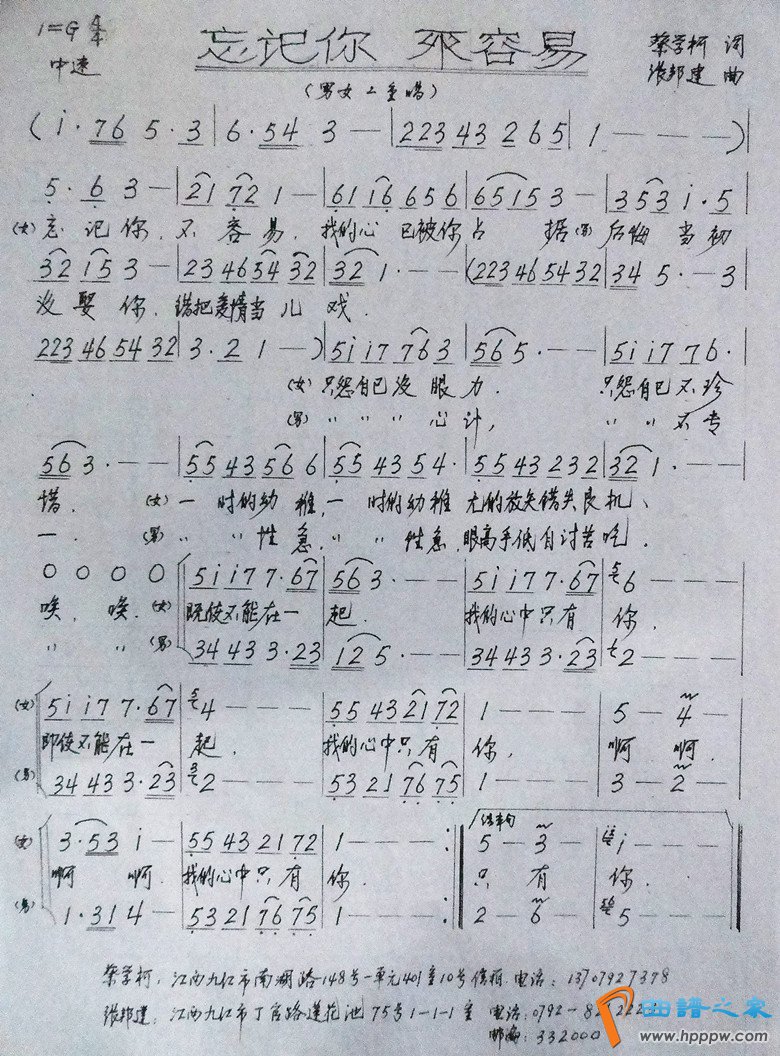 1=G 4/4
忘记你 不容易
蔡学柯 词
中速
张邦建 曲
(男女二重唱)
( i·76 5·3 | 6·54 3 — — | 223 43 2 6 5 | 1 — — — ) |
5·6 3 — | 21 72 1 — | 61 i6 656 | 65 i5 3 — | 353 i·5
(女) 忘记你 不容易. 我的心已被你占据 (男) 后悔当初
32 i5 3 — | 23 46 54 32 | 32 1·— — | (223 46 54 32 | 34 5·— 3
没娶你. 错把爱情当儿戏.
223 46 54 32 | 3·2 1 — ) | 5i i7 76 3 | 56 5·— — | 5i i7 76·
(女) 只怨自己没眼力. 只怨自己不珍
(男) 〃 〃 〃 心计, 〃 〃 不专
56 3·— — | 55 43 56 6 | 55 43 54· | 55 43 232 | 32 1·—
惜. (女) 一时的幼稚, 一时的幼稚 无的放矢错失良机、
一. (男) 〃 〃 性急, 〃 性急, 眼高手低自讨苦吃.
0 0 0 0 | 5i i7 7·67 | 56 3·— — | 5i i7 7·67 | 6 — — —
唉. 唉. (女) 既使不能在一起. 我的心中只有你.
〃 〃 (男) 34 43 3·23 | 12 5·— — | 34 43 3·23 | 2 — — —
(女) 5i i7 7·67 | 4 — — — | 55 43 21 72 | 1 — — — | 5 — 4 —
即使不能在一起. 我的心中只有你. 啊 啊.
(男) 34 43 3·23 | 2 — — — | 53 21 76 75 | 1 — — — | 3 — 2 —
结束句
(女) 3·53 i — | 55 43 21 72 | 1 — — — :‖ 5 — 3 — | i — — —
啊 啊. 我的心中只有你. 只有你.
(男) 1·31 4 — | 53 21 76 75 | 1 — — — :‖ 2 — 6 — | 5 — — —
蔡学柯. 江西九江市南湖路148号一单元401室10号信箱 电话: 13707927378
张邦建. 江西九江市丁官路莲花池75号1-1-1室 电话: 0792-
邮编: 332000
曲谱之家
www.hppw.com